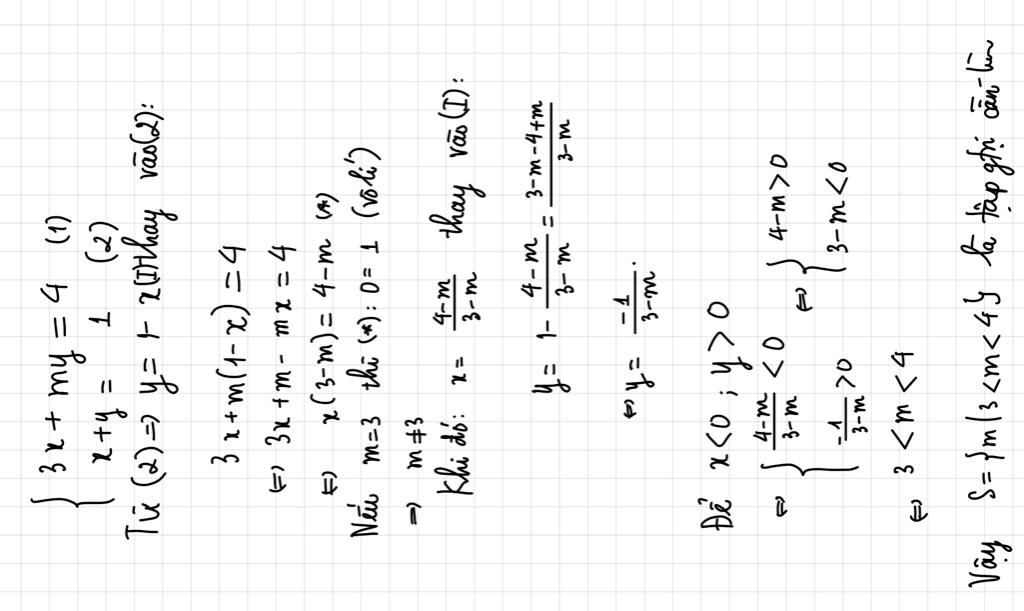 { 3x + my = 4 (1)
x + y = 1 (2)
Từ (2) => y = 1 - x (I) thay vào (2):
3x + m(1 - x) = 4
<=> 3x + m - mx = 4
<=> x(3-m) = 4-m (*)
Nếu m=3 thì (*): 0 = 1 (vô lí)
=> m ≠ 3
Khi đó: x = \frac{4-m}{3-m} thay vào (I):
y = 1 - \frac{4-m}{3-m} = \frac{3-m-4+m}{3-m}
<=> y = \frac{-1}{3-m}.
Để x < 0 ; y > 0
<=> { \frac{4-m}{3-m} < 0 <=> { 4-m > 0
\frac{-1}{3-m} > 0 3-m < 0
<=> 3 < m < 4
Vậy S = {m | 3 < m < 4} là tập gtrị cần tìm